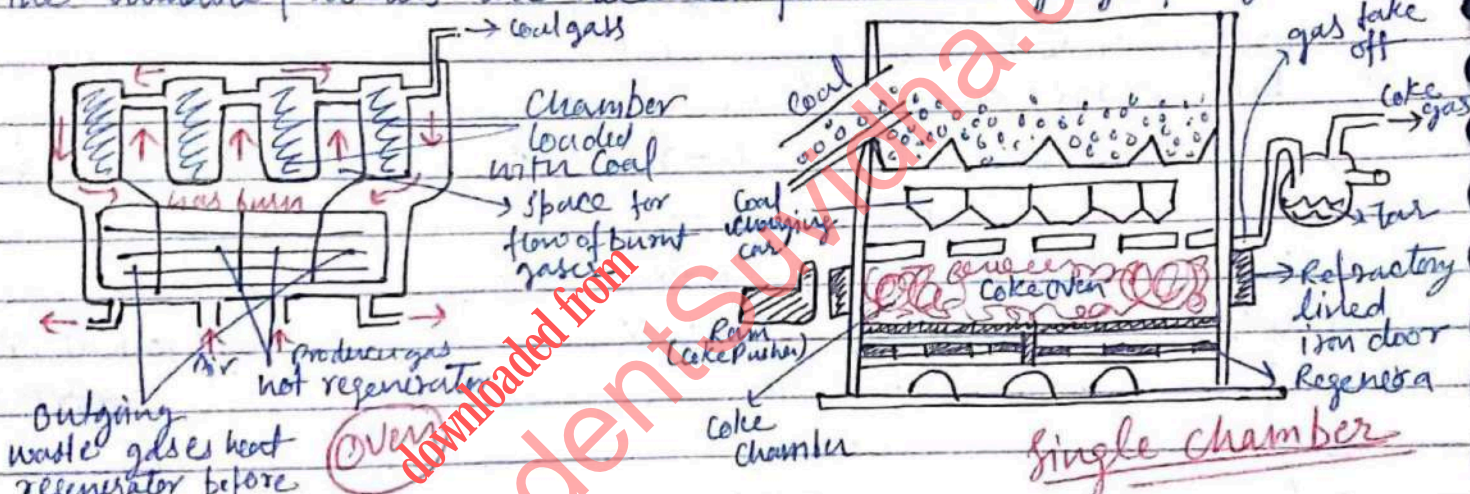 coal gass
Chamber
loaded
with Coal
space for
flow of burnt
gases
Air
Producer gas
hot regenerator
Outgoing
waste gases heat
regenerator before
Oven
downloaded from
dentSuvidha.c
coal
Coal
charging
car
Ram
(Coke Pusher)
Coke
Chamber
Coke Oven
gas take
off
Coke
gas
Tar
Refractory
lined
iron door
Regenera
Single Chamber